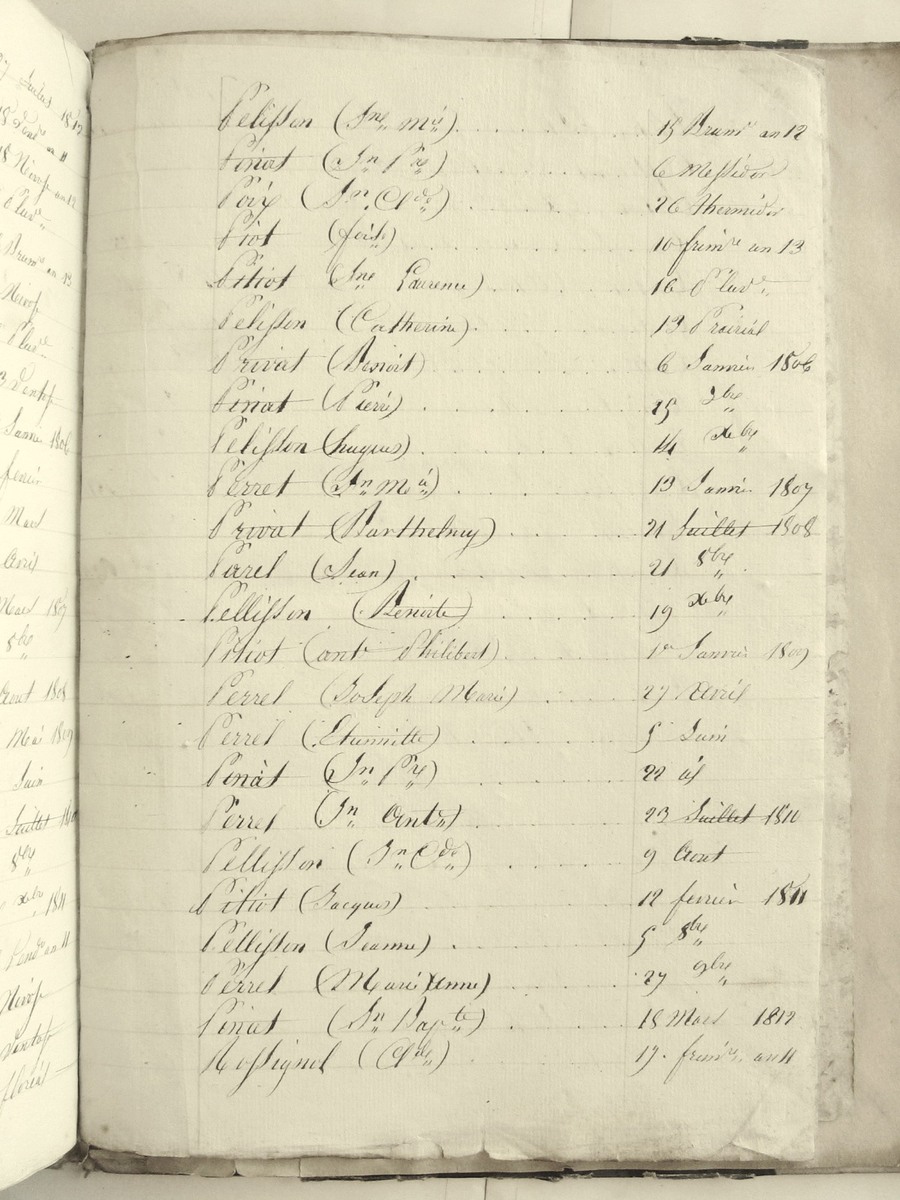 27 Juillet 1812
18 Vend an 11
18 Nivose an 12
Pluv
Brum an 13
Nivose
Pluv
Ventose
Janvier 1806
fevrier
Mars
Avril
Mars 1807
8bre
Aout 1808
Mai 1809
Juin
Juillet
8bre
Xbre 1811
Vend an 11
Nivose
Ventose
floréal
Pelisson (Jne Mie) 15 Brumre an 12
Pinat (Jn Pre) 6 Messidor
Poix (Jn Cde) 26 thermidor
Piot 10 frimre an 13
Pitiot (Jne Laurence) 16 Pluvse
Pelisson (Catherine) 13 Prairial
Privat (Benoit) 6 Janvier 1806
Pinat (Pierre) 25
Pelisson (hugues) 14 Xbre
Perret (Jn Mie) 13 Janvier 1807
Privat (Barthelmy) 21 Juillet 1808
Parel (Jean) 21 8bre
Pellisson (Benoite) 19 Xbre
Pitiot (ant Philibert) 1er Janvier 1809
Perrel (Joseph Marie) 27 Avril
Perrel (Etiennette) 5 Juin
Pinat (Jn Pre) 22 id
Perrel (Jn Ante) 23 Juillet 1810
Pellisson (Jn Cde) 9 Aout
Pitiot (Jacques) 12 fevrier 1811
Pellisson (Jeanne) 5 8bre
Perrel (Marie Anne) 27 9bre
Pinat (Jn Bapte) 15 Mars 1812
Rossignol (Clde) 17 frimre an 11